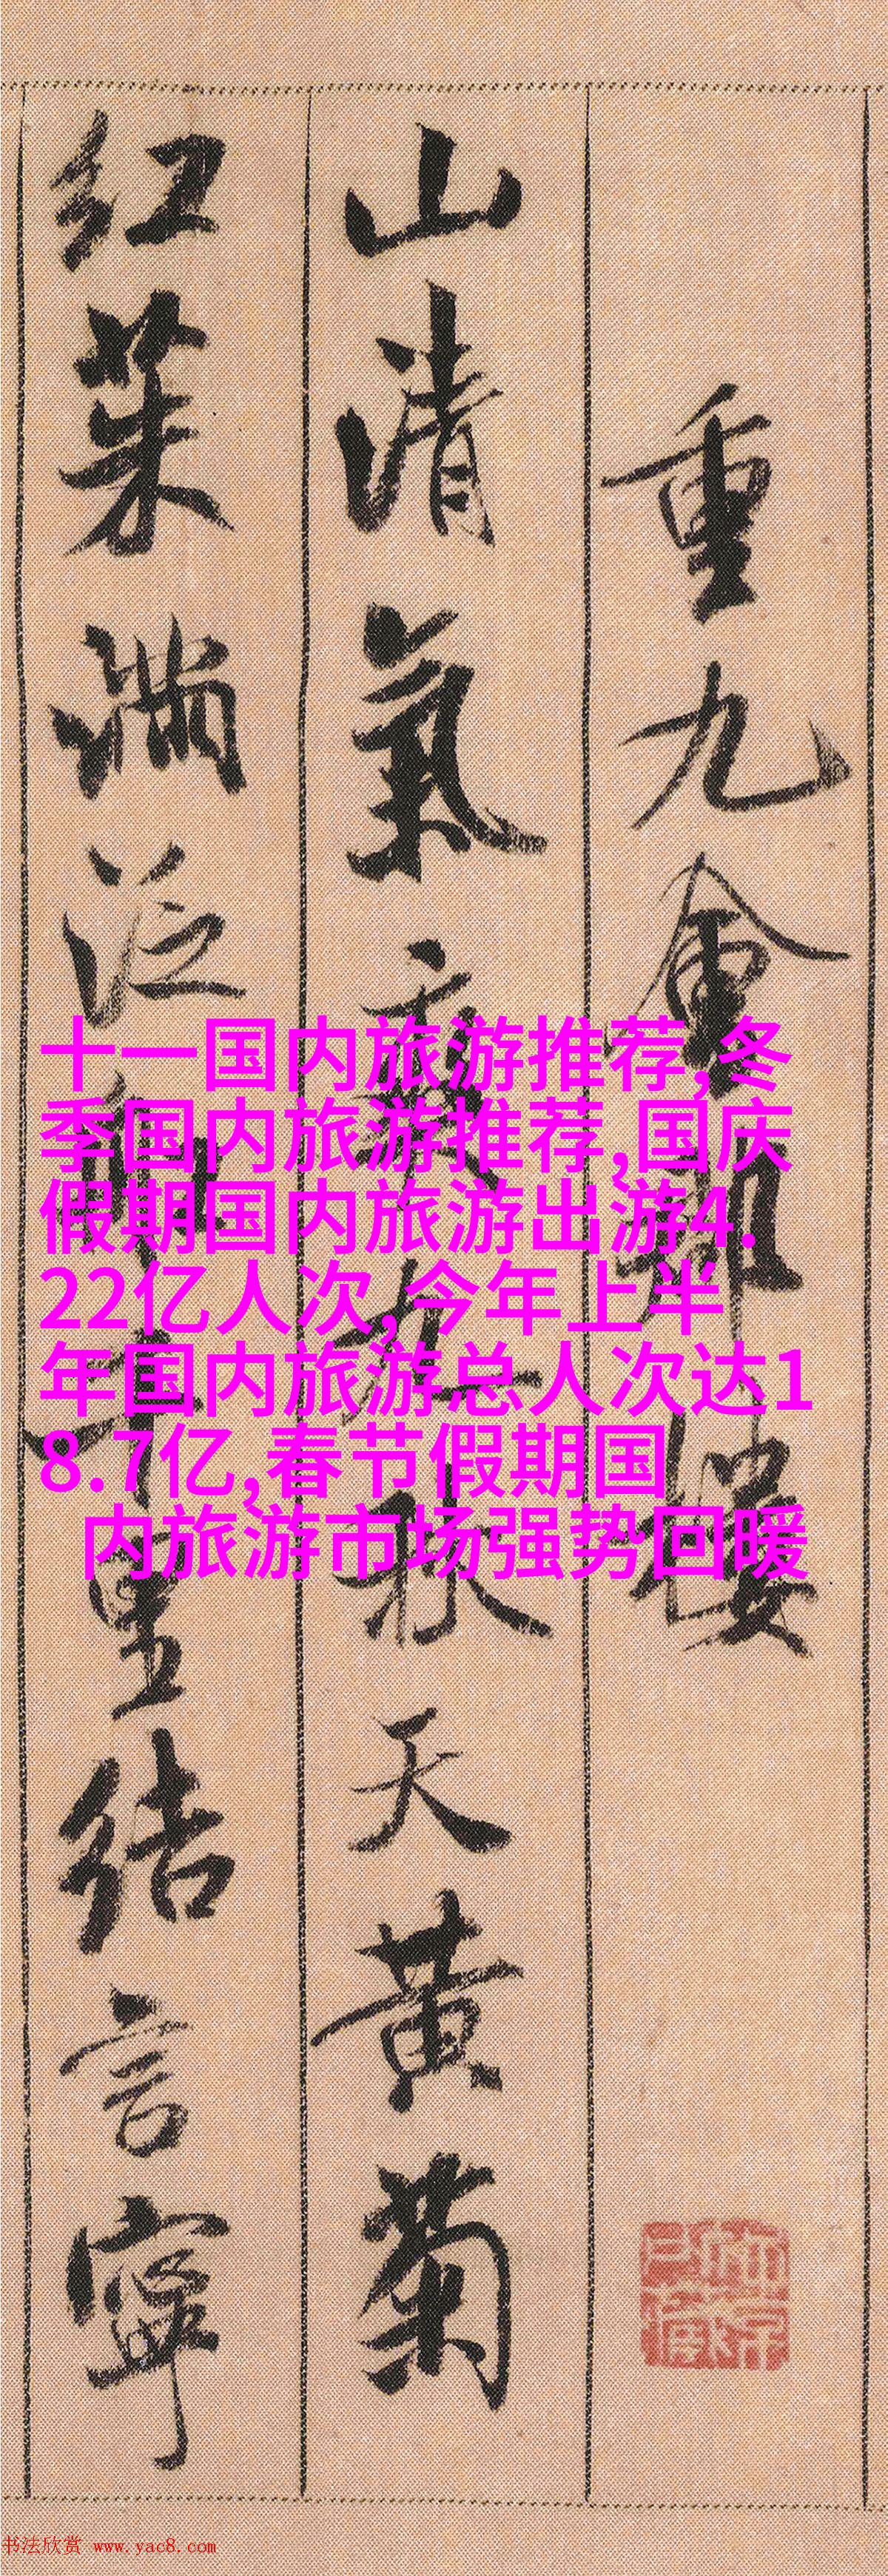 重九會郡樓
山清氣爽九秋天黃菊
紅茱滿泛船千里結言寧
十一国内旅游推荐,冬
季国内旅游推荐,国庆
假期国内旅游出游4.
22亿人次,今年上半
年国内旅游总人次达1
8.7亿,春节假期国
内旅游市场强势回暖
书法欣赏 www.yac8.com